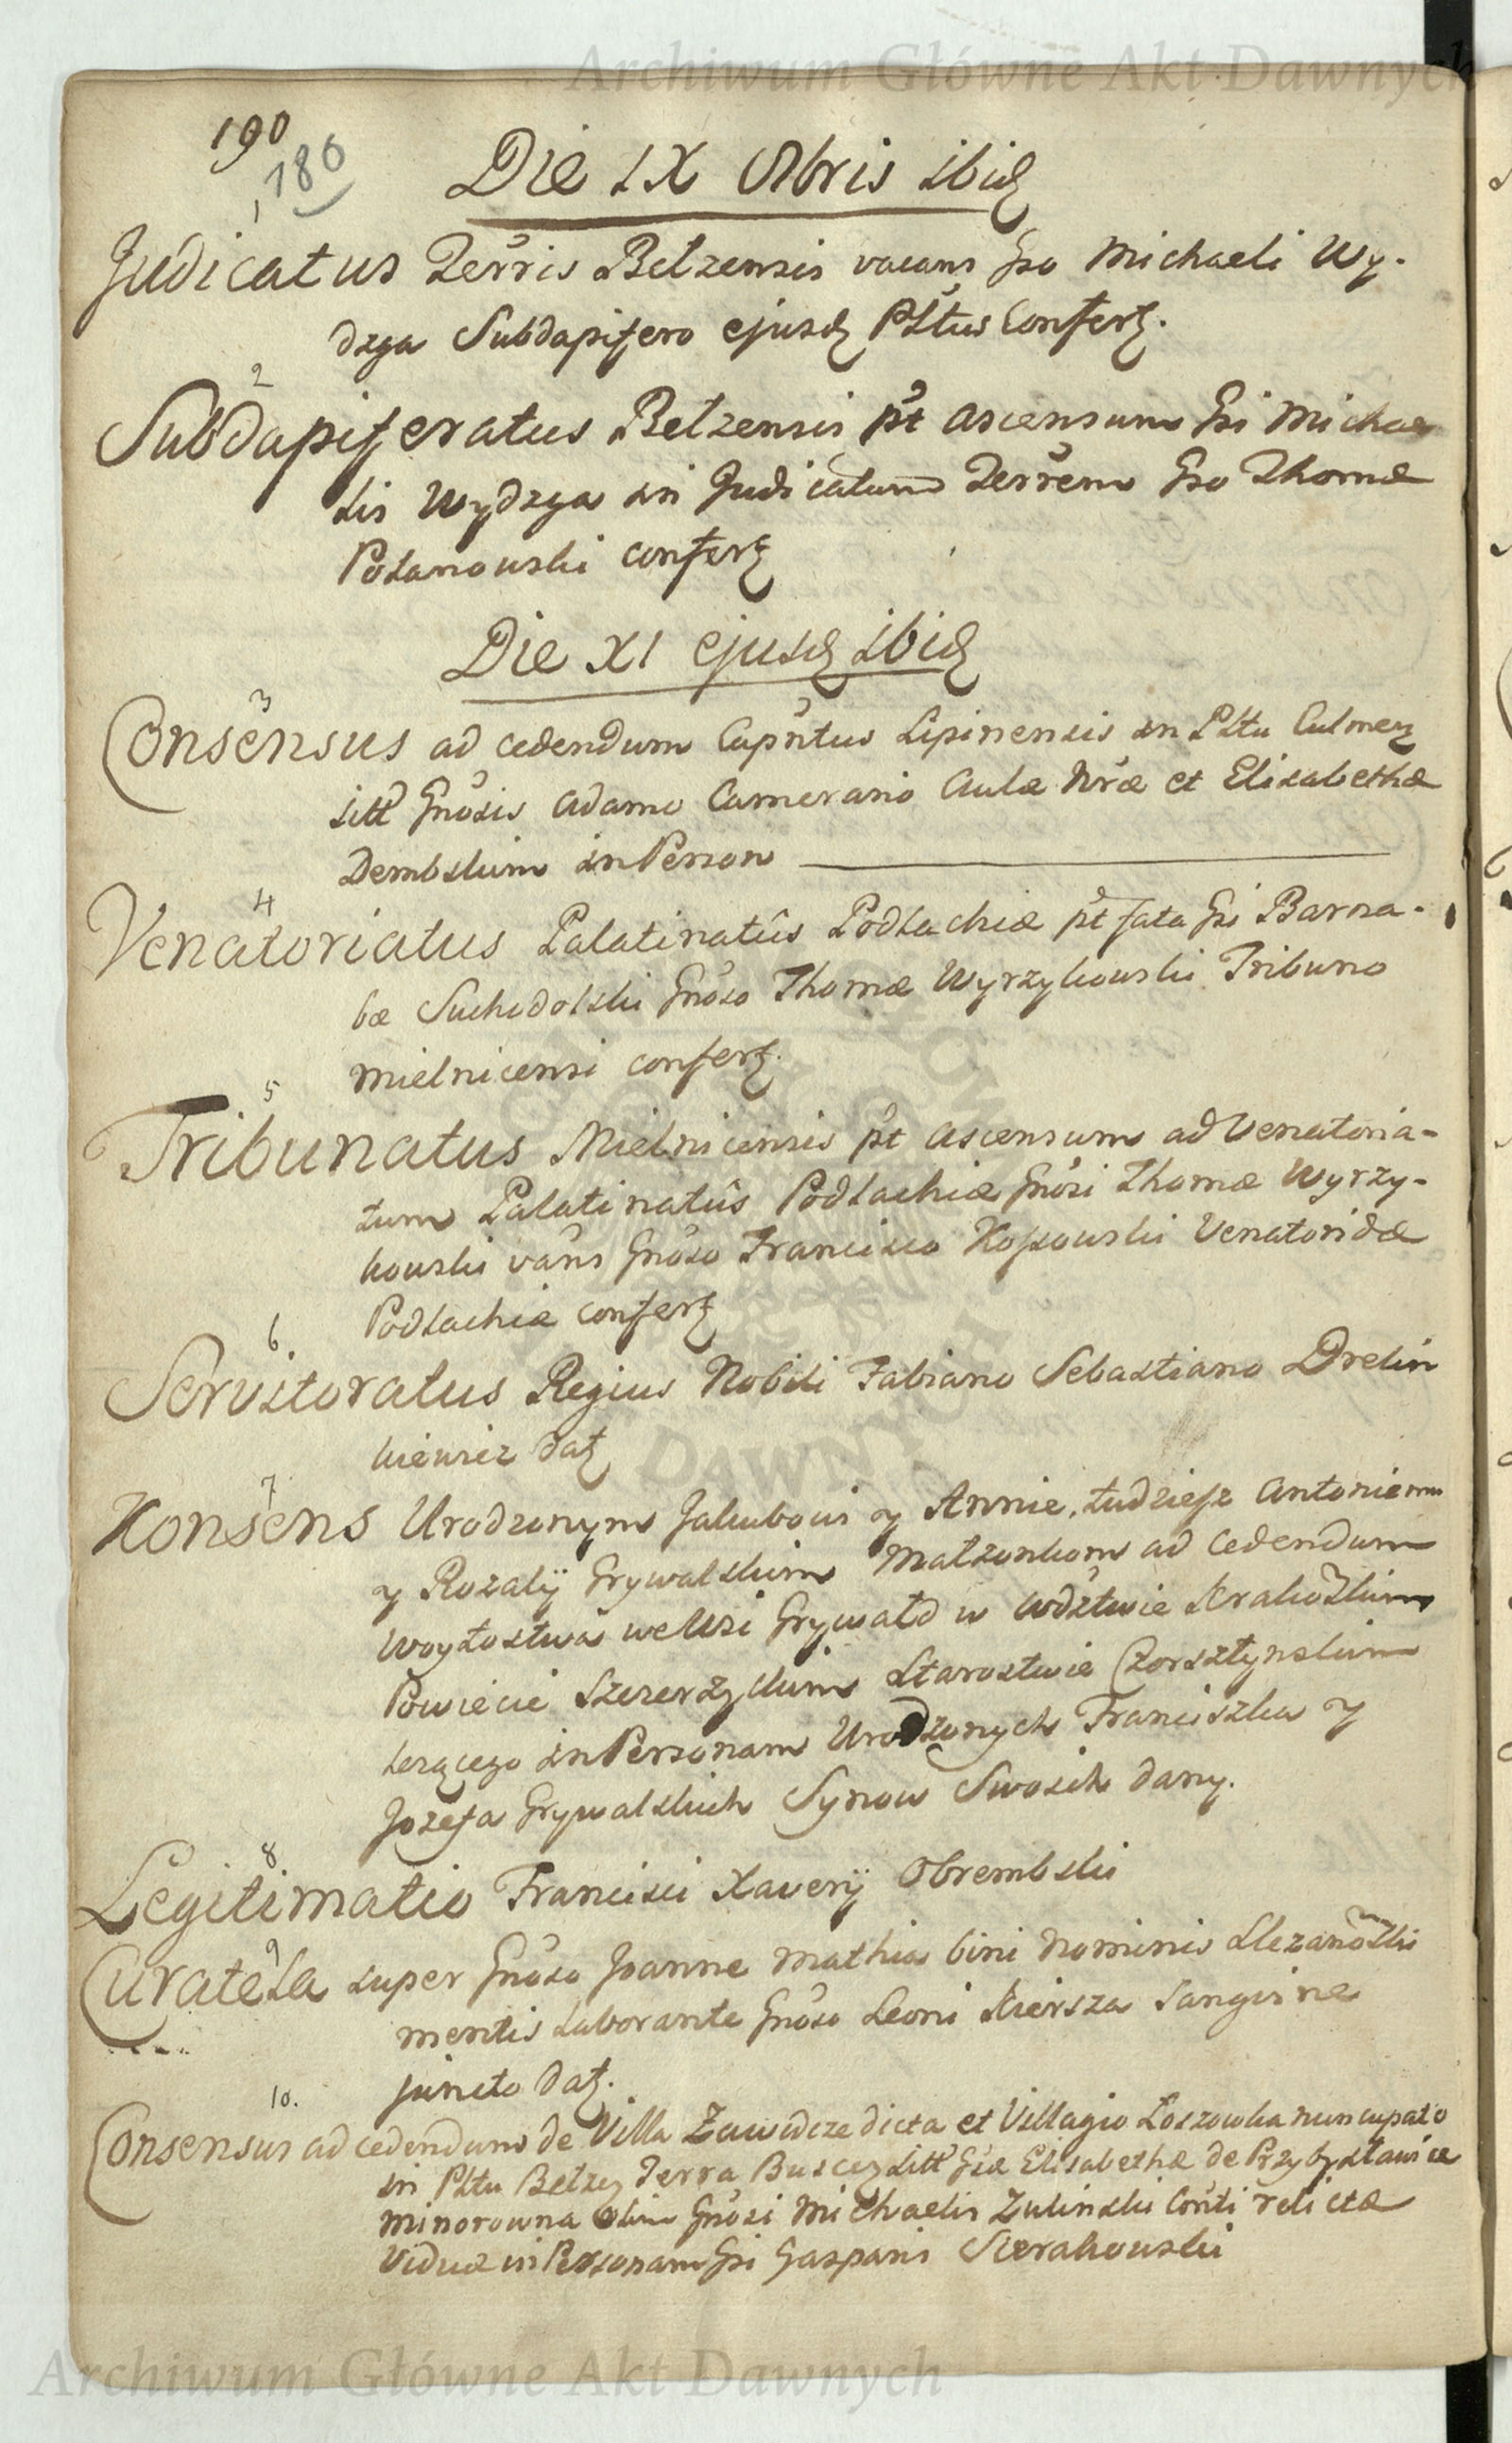 Archiwum Główne Akt Dawnych
190
180
Die IX Obris ibid
1
Judicatus Terris Belzensis vacans Gso Michaeli Wy-
dzga Subdapifero ejusd Pltus Confert.
2
Subdapiferatus Belzensis pt ascensum Gsi Michae
lis Wydzga in Judicatum Terrem Gso Thomæ
Polanowski confert
Die XI ejusd ibid
3
Consensus ad cedendum Capntus Lipinensis in Pltu Culmen
sitt Gnosis Adamo Camerario Aulæ Nræ et Elisabethæ
Dembskim in Person
4
Venatoriatus Palatinatûs Podlachiæ pt fata Gsi Barna-
bæ Suchodolski Gnoso Thomæ Wyrzykowski Tribuno
Mielnicensi confert.
5
Tribunatus Mielnicensis pt ascensum ad Venatoria-
tum Palatinatûs Podlachiæ Gnosi Thomæ Wyrzy-
kowski vans Gnoso Francisco Kossowski Venatoridæ
Podlachiæ confert
6
Servitoratus Regius Nobili Fabiano Sebastiano Drelin
kiewicz dat
7
Konsens Urodzonym Jakubowi y Annie, tudziesz Antoniemu
y Rozalij Grywalskim Małzonkom ad cedendum
Woytostwa we Wsi Grywałd w Wdztwie Krakoskim
Powiecie Szczerzyckim Starostwie Czorsztynskim
lezącego in Personam Urodzonych Franciszka y
Jozefa Grywalskich Synow Swoich dany.
8
Legitimatio Francisci Xaverij Obrembski
9
Curatela super Gnoso Joanne Mathia bini Nominis Slezanoski
mentis laborante Gnoso Leoni Kiersza Sangvine
juncto dat.
10.
Consensus ad cedendum de Villa Zawidcze dicta et Villagio Loszowka nuncupato
in Pltu Belzen Terra Buscen sitt Gsæ Elisabethæ de Przybysławice
Minorowna olim Gnosi Michaelis Zulinski Conti relictæ
Viduæ in Personam Gsi Gasparis Sierakowski
Archiwum Główne Akt Dawnych